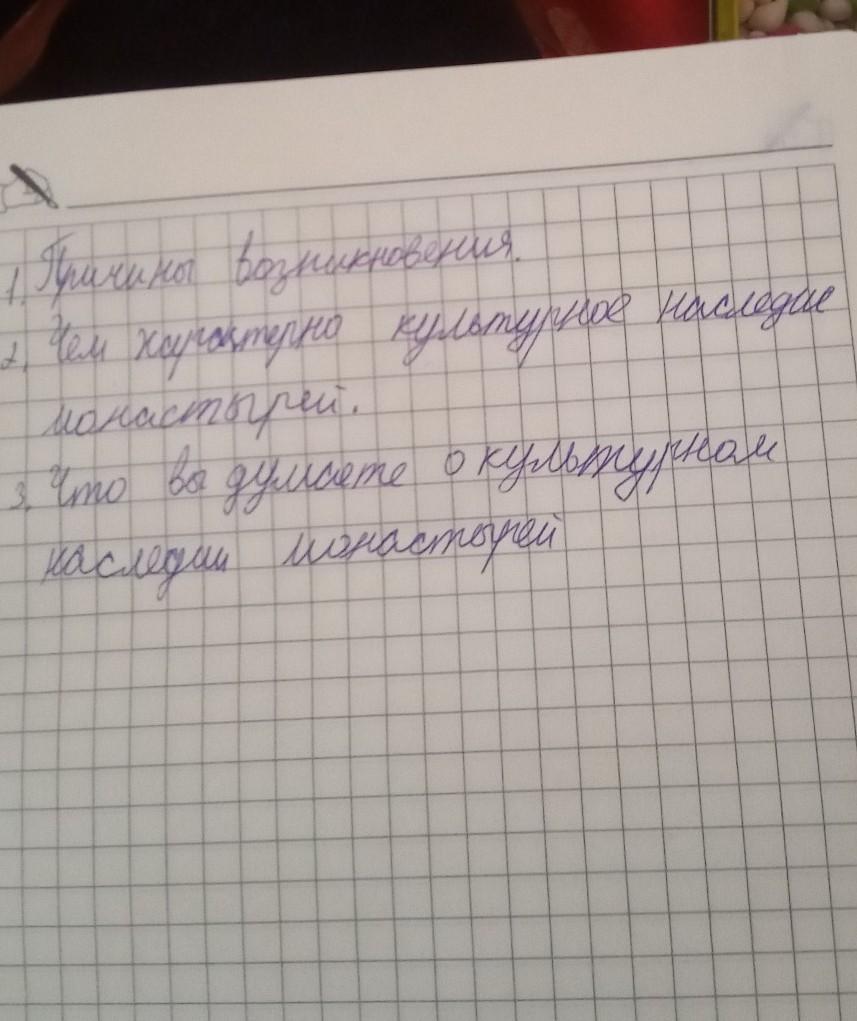 1. Причины возникновения.
2. Чем характерно культурное наследие
монастырей.
3. Что вы думаете о культурном
наследии монастырей